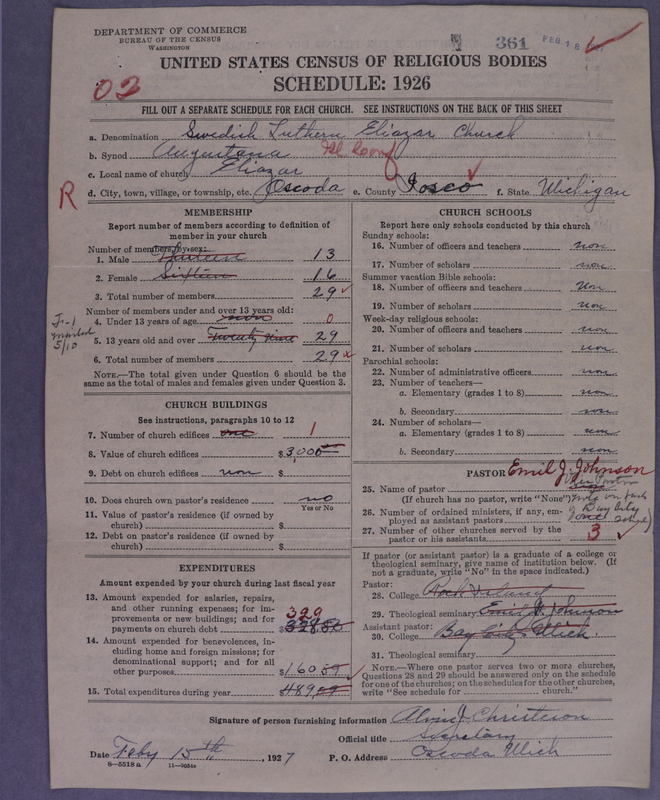 DEPARTMENT OF COMMERCE
BUREAU OF THE CENSUS
WASHINGTON
361 FEB 18
UNITED STATES CENSUS OF RELIGIOUS BODIES
SCHEDULE: 1926
02
FILL OUT A SEPARATE SCHEDULE FOR EACH CHURCH. SEE INSTRUCTIONS ON THE BACK OF THIS SHEET
a. Denomination Swedish Luthern Eliazar Church
b. Synod Augustana
c. Local name of church Eliazar
R
d. City, town, village, or township, etc. Oscoda e. County Iosco f. State Michigan
MEMBERSHIP
Report number of members according to definition of
member in your church
Number of members, by sex:
1. Male Thirteen 13
2. Female Sixteen 16
3. Total number of members 29
Number of members under and over 13 years old:
4. Under 13 years of age non 0
5. 13 years old and over Twenty nine 29
6. Total number of members 29
J-1
5/10
NOTE.—The total given under Question 6 should be
same as the total of males and females given under Question 3.
CHURCH BUILDINGS
See instructions, paragraphs 10 to 12
7. Number of church edifices one 1
8. Value of church edifices $3,000
9. Debt on church edifices non $
10. Does church own pastor's residence no
Yes or No
11. Value of pastor's residence (if owned by
church) $
12. Debt on pastor's residence (if owned by
church) $
EXPENDITURES
Amount expended by your church during last fiscal year
13. Amount expended for salaries, repairs,
and other running expenses; for im-
provements or new buildings; and for
payments on church debt 329 $328.56
14. Amount expended for benevolences, in-
cluding home and foreign missions; for
denominational support; and for all
other purposes $160
15. Total expenditures during year $489
CHURCH SCHOOLS
Report here only schools conducted by this church
Sunday schools:
16. Number of officers and teachers non
17. Number of scholars non
Summer vacation Bible schools:
18. Number of officers and teachers non
19. Number of scholars non
Week-day religious schools:
20. Number of officers and teachers non
21. Number of scholars non
Parochial schools:
22. Number of administrative officers non
23. Number of teachers—
a. Elementary (grades 1 to 8) non
b. Secondary non
24. Number of scholars—
a. Elementary (grades 1 to 8) non
b. Secondary non
PASTOR Emil J. Johnson
25. Name of pastor
(If church has no pastor, write "None")
26. Number of ordained ministers, if any, em-
ployed as assistant pastors
Bay City
27. Number of other churches served by the
pastor or his assistants 3
If pastor (or assistant pastor) is a graduate of a college or
theological seminary, give name of institution below. (If
not a graduate, write "No" in the space indicated.)
Pastor:
28. College Rock Island
29. Theological seminary Emil J. Johnson
Assistant pastor:
30. College Bay City Mich.
31. Theological seminary
NOTE.—Where one pastor serves two or more churches,
Questions 28 and 29 should be answered only on the schedule
for one of the churches; on the schedules for the other churches,
write "See schedule for church."
Signature of person furnishing information Alvin J. Christeson
Official title Secretary
Date Feby 15th, 1927 P. O. Address Oscoda Mich
8-5518a 11-9054a